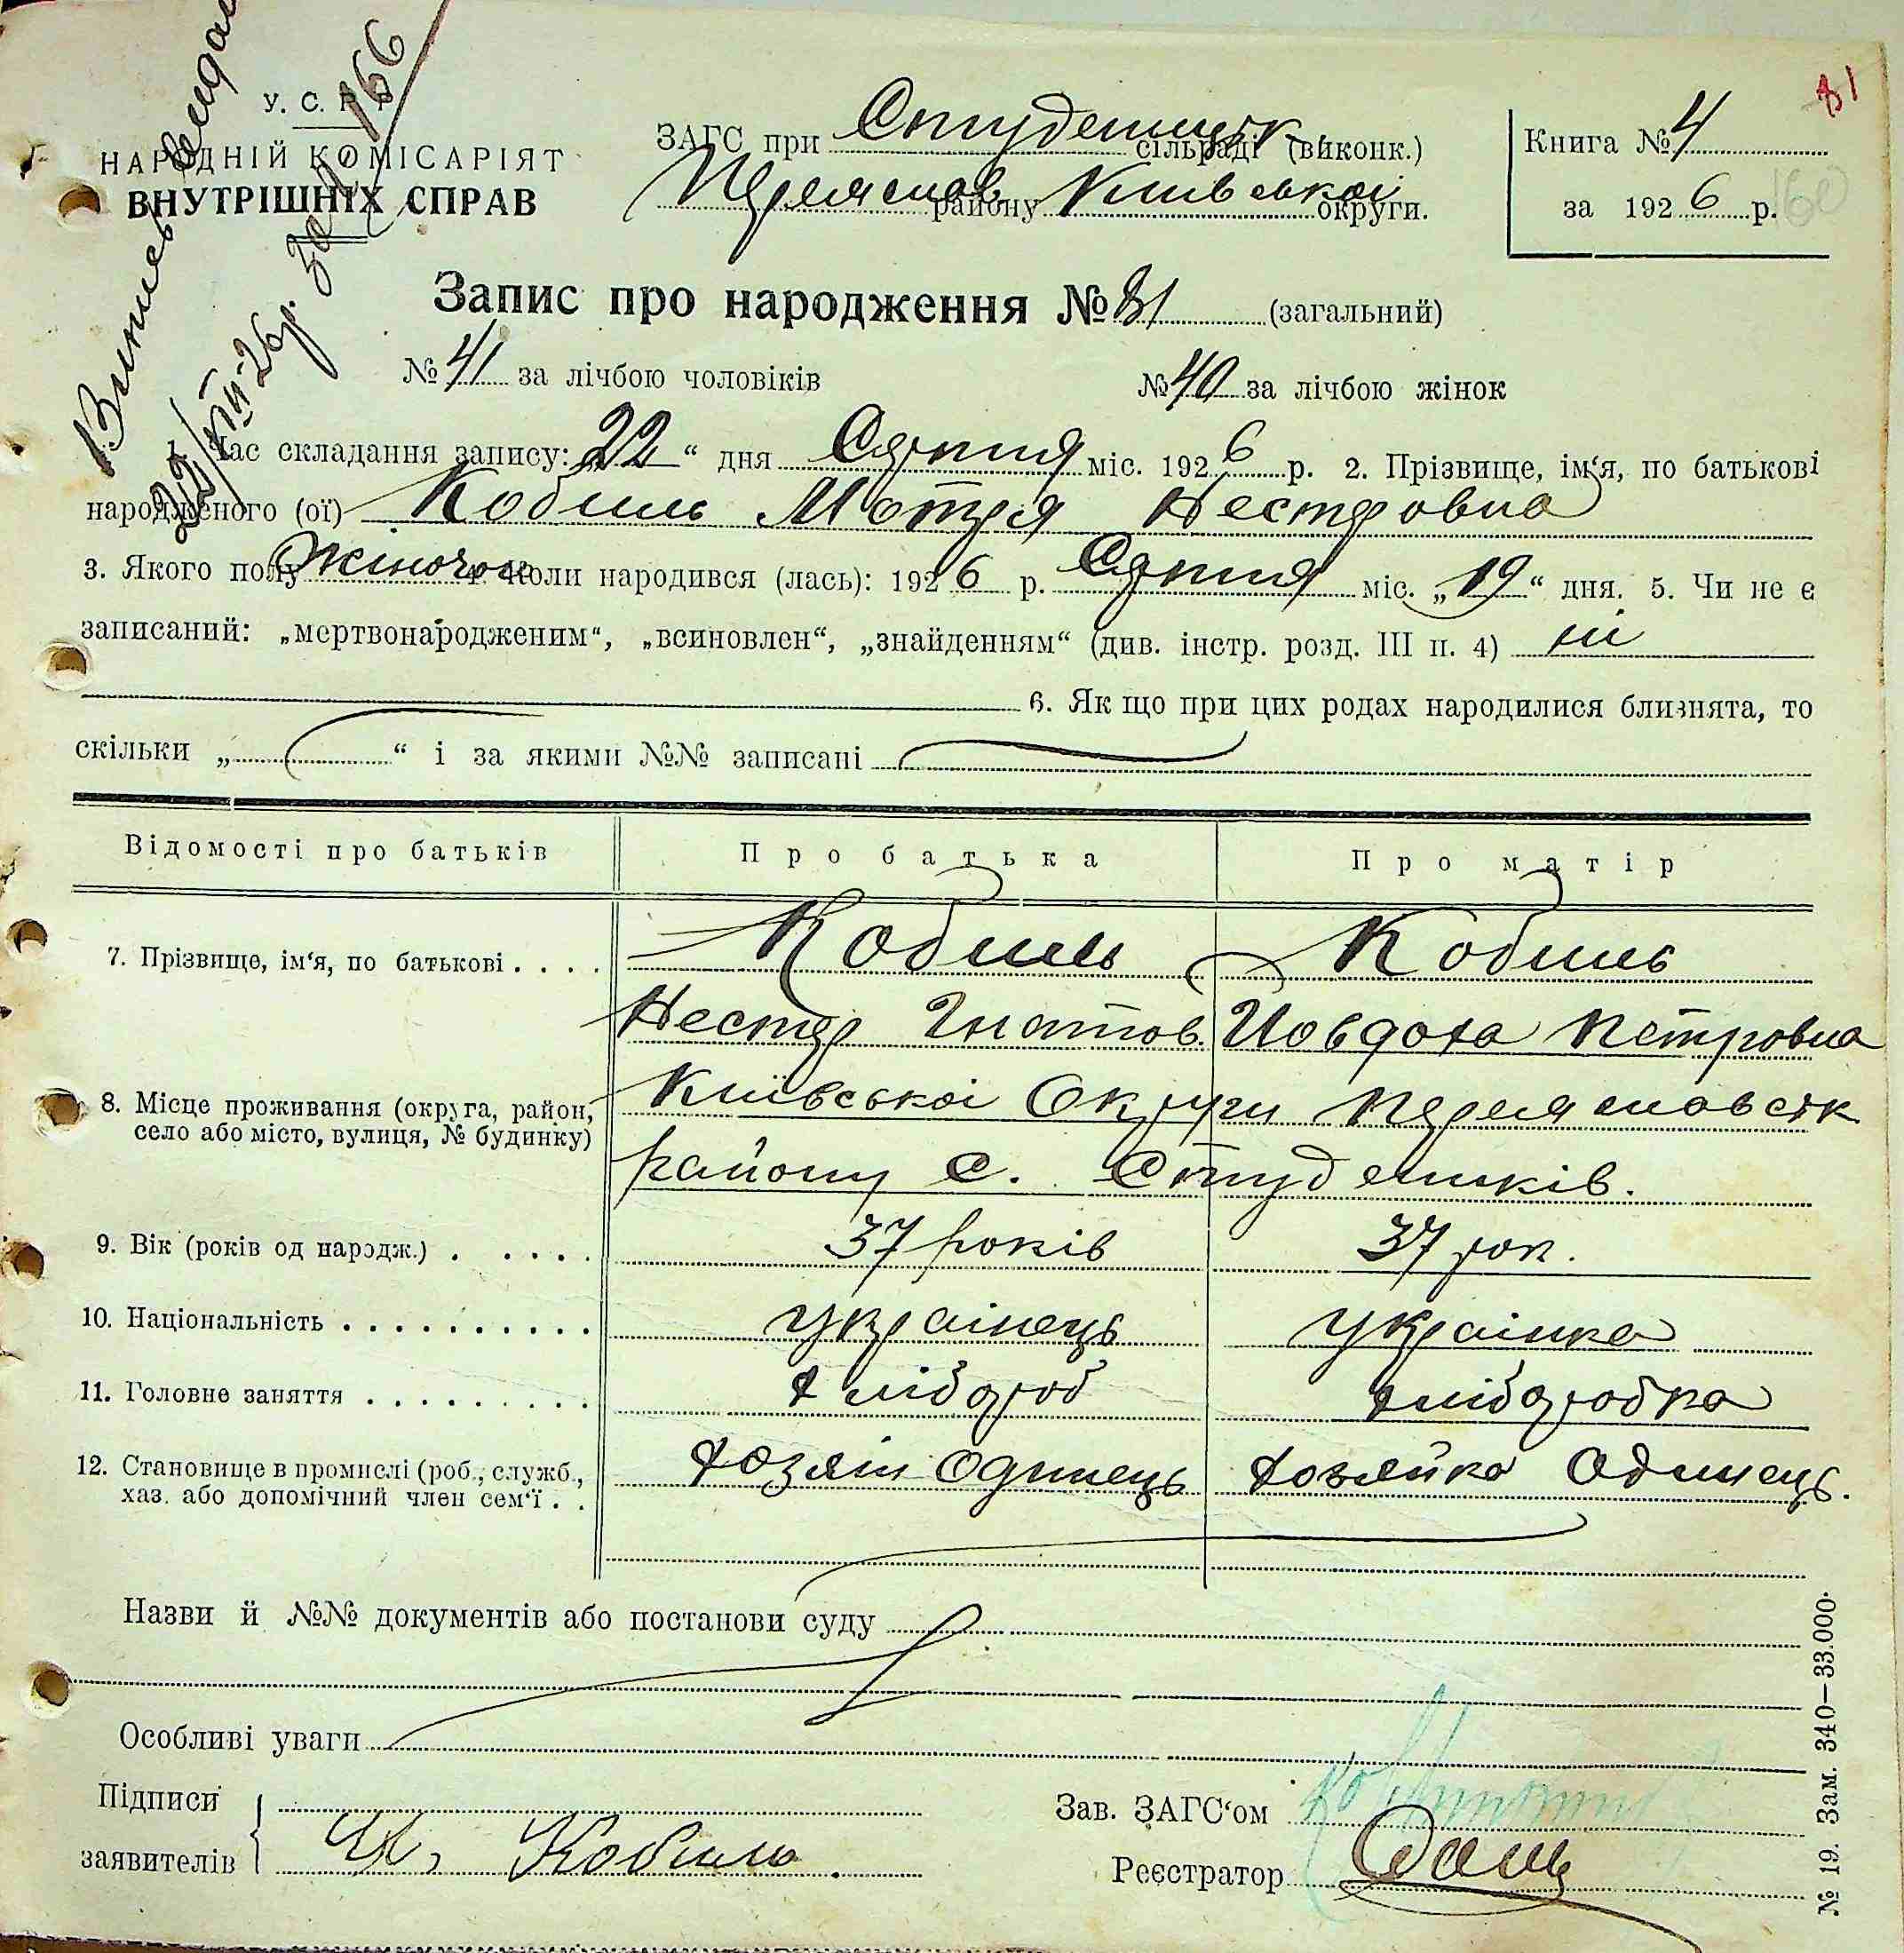 81
У. С. Р. Р.
НАРОДНІЙ КОМІСАРІЯТ
ВНУТРІШНІХ СПРАВ
Випись видан
22/VIII-26 р. за № 166
ЗАГС при Студеницьк. сільраді (виконк.)
Переяслав. району Київськоі округи.
Книга № 4
за 1926 р.
160
Запис про народження № 81 (загальний)
№ 41 за лічбою чоловіків № 40 за лічбою жінок
1. Час складання запису: „22“ дня Серпня міс. 1926 р. 2. Прізвище, ім‘я, по батькові
народженого (ої) Кобиль Мотря Нестеровна
3. Якого полу жіночого 4. Коли народився (лась): 1926 р. Серпня міс. „19“ дня. 5. Чи не є
записаний: „мертвонародженим“, „всиновлен“, „знайденням“ (див. інстр. розд. III п. 4) ні
6. Як що при цих родах народилися близнята, то
скільки „ “ і за якими №№ записані
Відомості про батьків Про батька Про матір
7. Прізвище, ім‘я, по батькові . . . . Кобиль Кобиль
Нестер Гнатов. Йовдоха Петровна
8. Місце проживання (округа, район, Київськоі Округи Переяславськ
село або місто, вулиця, № будинку) району с. Студеників.
9. Вік (років од народж.) . . . . . 37 років 37 рок.
10. Національність . . . . . . . . . . украінець украінка
11. Головне заняття . . . . . . . . . хлібороб хліборобка
12. Становище в промислі (роб., служб., хозяін Одинець хозяйка Одинець.
хаз. або допомічний член сем‘ї . .
Назви й №№ документів або постанови суду
Особливі уваги
Підписи
заявителів Кобиль.
Зав. ЗАГС‘ом
Реєстратор
№ 19. Зам. 340—33.000.